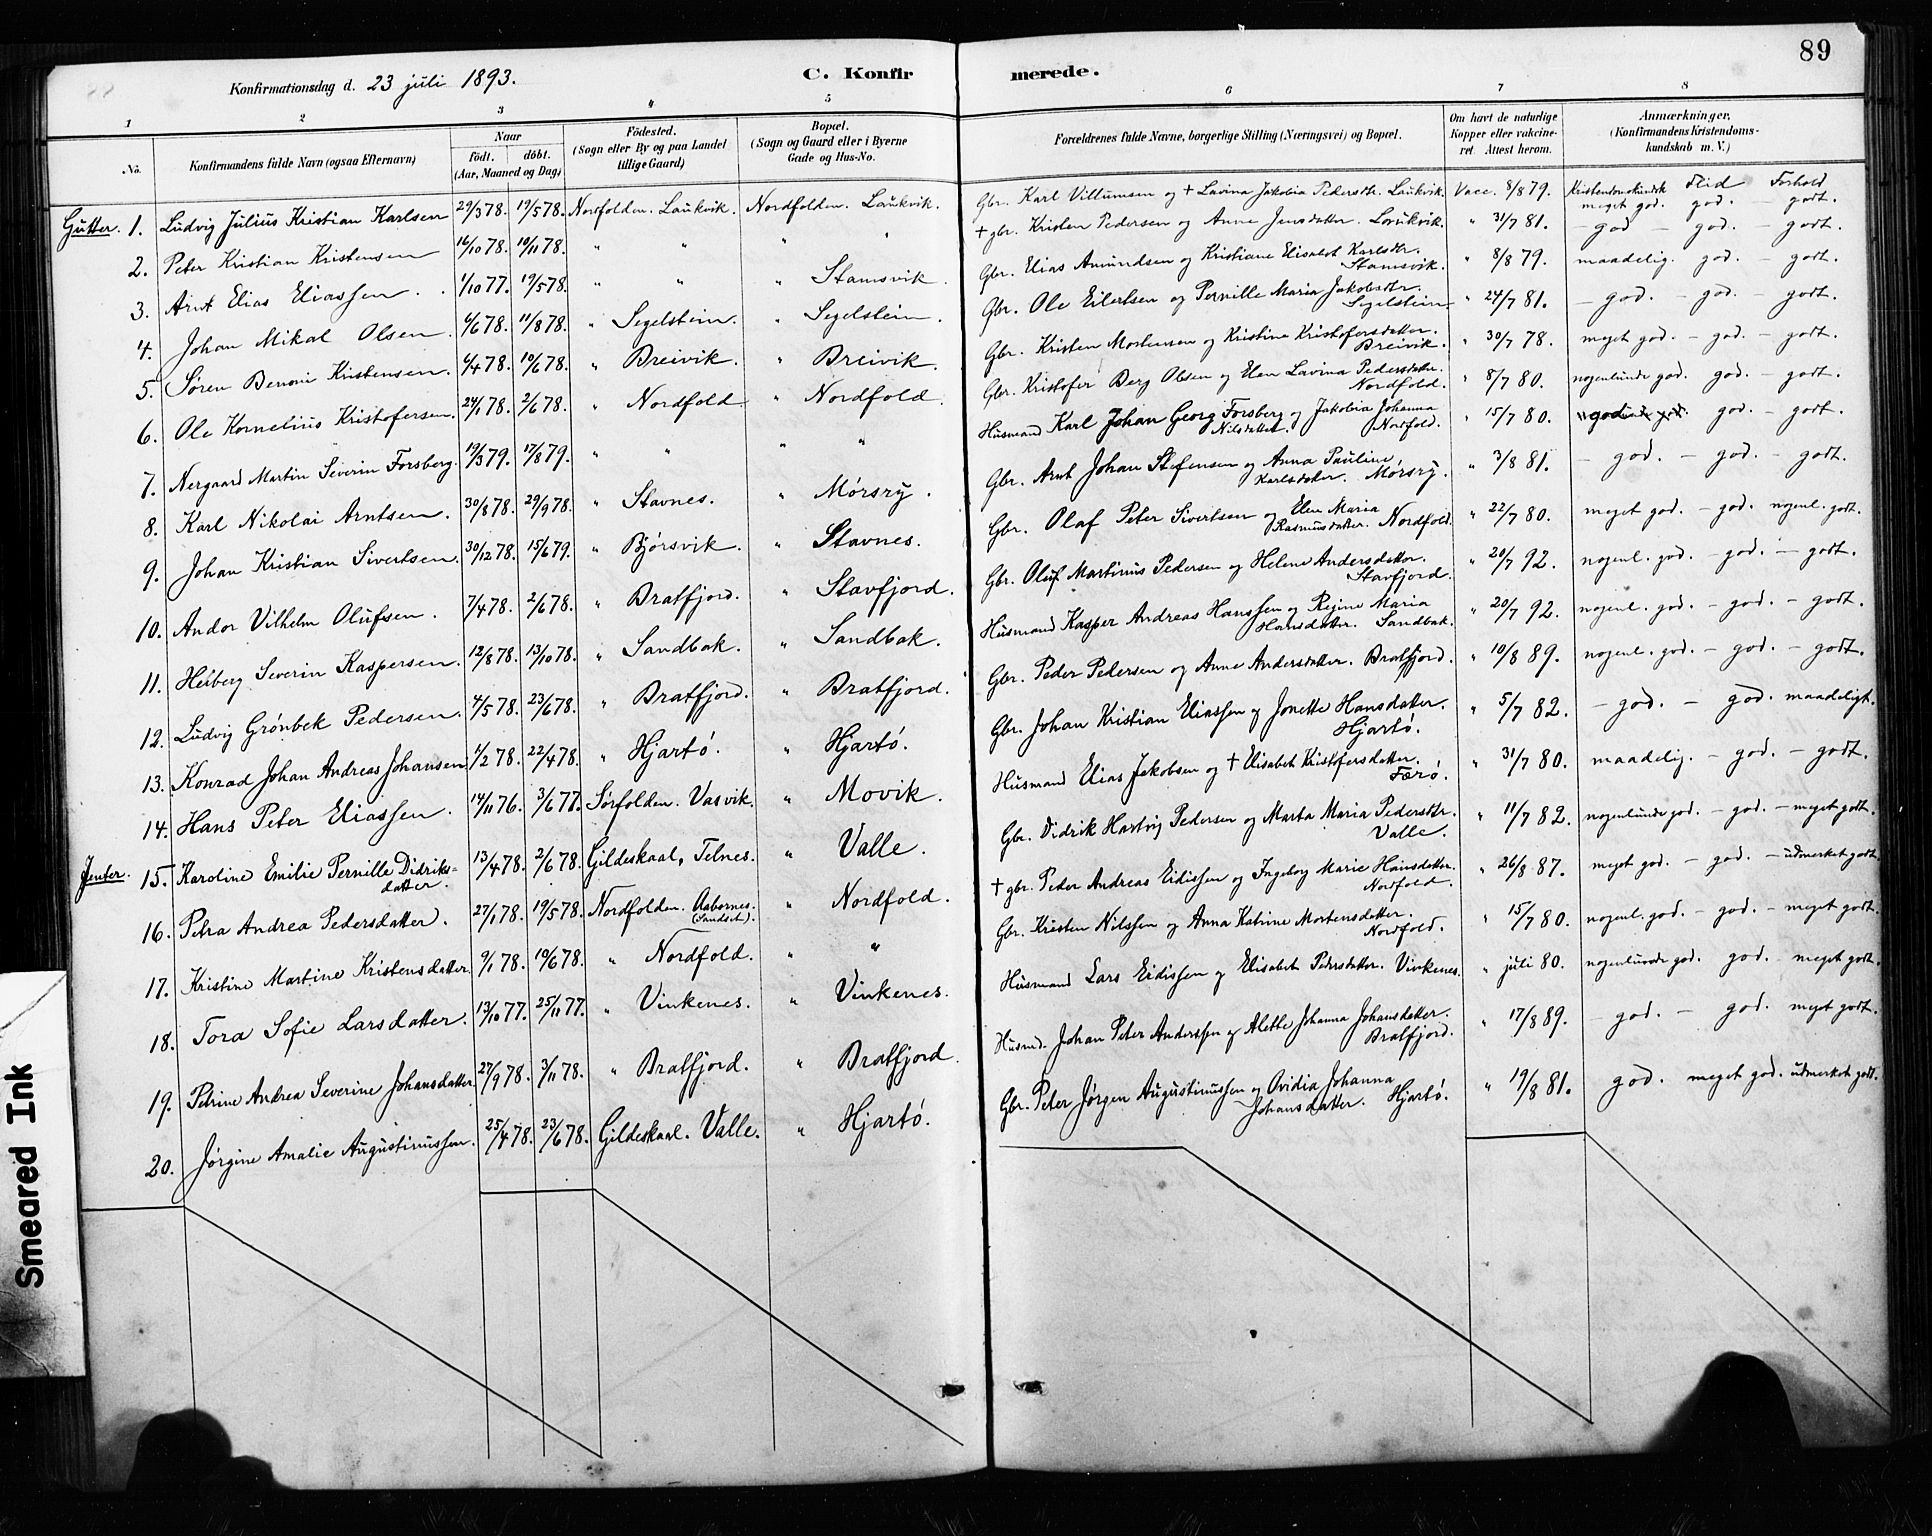 89
Konfirmationsdag d. 23 juli 1893.
C. Konfirmerede.
1 2 3 4 5 6 7 8
No. Konfirmandens fulde Navn (ogsaa Efternavn) Naar født. døbt. (Aar, Maaned og Dag) Fødested. (Sogn eller By og paa Landet tillige Gaard) Bopæl. (Sogn og Gaard eller i Byerne Gade og Hus-No. Forældrenes fulde Navne, borgerlige Stilling (Næringsvei) og Bopæl. Om havt de naturlige Kopper eller vakcineret. Attest herom. Anmærkninger. (Konfirmandens Kristendomskundskab m. V.)
Kristendomskundsk. Flid Forhold
Gutter. 1. Ludvig Julius Kristian Karlsen 29/3 78. 19/5 78. Nordfolden. Laukvik. Nordfolden. Laukvik. Gbr. Karl Villumsen og + Lavina Jakobia Pedersdtr. Laukvik. Vacc. 8/8 79. meget god. god. — godt.
2. Peter Kristian Kristensen 16/10 78. 10/11 78. " " " " + gbr. Kristen Pedersen og Anne Jensdatter. Laukvik. " 31/7 81. — god — god. — godt.
3. Arnt Elias Eliassen. 1/10 77. 19/5 78. " " " Stamsvik. Gbr. Elias Amundsen og Kristiane Elisabet Karlsdtr. Stamsvik. " 8/8 79. maadelig. god. — godt.
4. Johan Mikal Olsen 4/6 78. 11/8 78. " Segelstein. " Segelstein. Gbr. Ole Eilertsen og Pernille Maria Jakobsdtr. Segelstein " 24/7 81. — god. — god. godt.
5. Søren Benoni Kristensen. 4/4 78. 10/6 78. " Breivik. " Breivik. Gbr. Kristen Mortensen og Kristine Kristofersdatter. Breivik. " 30/7 78. meget god. — god. — godt.
6. Ole Kornelius Kristofersen. 24/1 78. 2/6 78. " Nordfold " Nordfold. Gbr. Kristofer Berg Olsen og Elen Lavina Pedersdatter. Nordfold. " 8/7 80. nogenlunde god. god. — godt.
7. Nergaard Martin Severin Forsberg. 19/3 79. 17/8 79. " " " " Husmand Karl Johan Georg Forsberg og Jakobia Johanna Nilsdatter. Nordfold. " 15/7 80. god. god. — godt.
8. Karl Nikolai Arntsen. 30/8 78. 29/9 78. " Stavnes. " Mørsry. Gbr. Arnt Johan Stefensen og Anna Pauline Karlsdatter. Mørsry. " 3/8 81. — god. — god. — godt.
9. Johan Kristian Sivertsen. 30/12 78. 15/6 79. " Bjørsvik. " Stavnes. Gbr. Olaf Peter Sivertsen og Elen Maria Rasmusdatter. Nordfold. " 22/7 80. meget god. — god. nogenl. godt.
10. Andor Vilhelm Olufsen. 7/4 78. 2/6 78. " Bratfjord. " Stavfjord. Gbr. Oluf Martinus Pedersen og Helene Andersdatter. Stavfjord. " 20/7 92. nogenl. god. — god. — godt.
11. Heiberg Severin Kaspersen. 12/8 78. 13/10 78. " Sandbak. " Sandbak. Husmand Kasper Andreas Hanssen og Regine Maria Hansdatter. Sandbak. " 20/7 92. nogenl. god. — god. — godt.
12. Ludvig Grønbek Pedersen. 4/5 78. 23/6 78. " Bratfjord. " Bratfjord. Gbr. Peder Pedersen og Anne Andersdatter. Bratfjord. " 10/8 89. nogenl. god. — god. — godt.
13. Konrad Johan Andreas Johansen 1/2 78. 22/4 78. " Hjartø. " Hjartø. Gbr. Johan Kristian Eliassen og Jonette Hansdatter. Hjartø. " 5/7 82. — god. — god. maadeligt.
14. Hans Peter Eliassen. 14/11 76. 3/6 77. Sørfolden. Vasvik. " Movik. Husmand Elias Jakobsen og + Elisabet Kristofersdatter. Færø. " 31/7 80. maadelig. — god. — godt.
Jenter. 15. Karoline Emilie Pernille Didriksdatter. 13/4 78. 2/6 78. Gildeskaal, Telnes. " Valle. Gbr. Didrik Hartvig Pedersen og Marta Maria Pedersdtr. Valle. " 11/7 82. nogenlunde god. — god. — meget godt.
16. Petra Andrea Pedersdatter. 27/1 78. 19/5 78. Nordfolden. Aabornes. (Sandset). " Nordfold. + gbr. Peder Andreas Eidissen og Ingeborg Marie Hansdatter. Nordfold. " 26/8 87. meget god. — god. — udmerket godt.
17. Kristine Martine Kristensdatter 9/1 78. 10/6 78. " Nordfold. " " Gbr. Kristen Nilssen og Anna Katrine Mortensdatter. Nordfold. " 15/7 80. nogenl. god. — god. — meget godt.
18. Tora Sofie Larsdatter. 13/10 77. 25/11 77. " Vinkenes. " Vinkenes. Husmand Lars Eidissen og Elisabet Pedersdatter. Vinkenes. " juli 80. nogenlunde god. god. — meget godt.
19. Petrine Andrea Severine Johansdatter 27/9 78. 3/11 78. " Bratfjord. " Bratfjord. Husmd. Johan Peter Anderssen og Alette Johanna Johansdatter. Bratfjord. " 17/8 89. — god. — god. meget godt.
20. Jørgine Amalie Augustinussen. 25/4 78. 23/6 78. Gildeskaal. Valle. " Hjartø. Gbr. Peter Jørgen Augustinussen og Ovidia Johanna Johansdatter. Hjartø. " 19/8 81. god. meget god. udmerket godt.
Smeared Ink